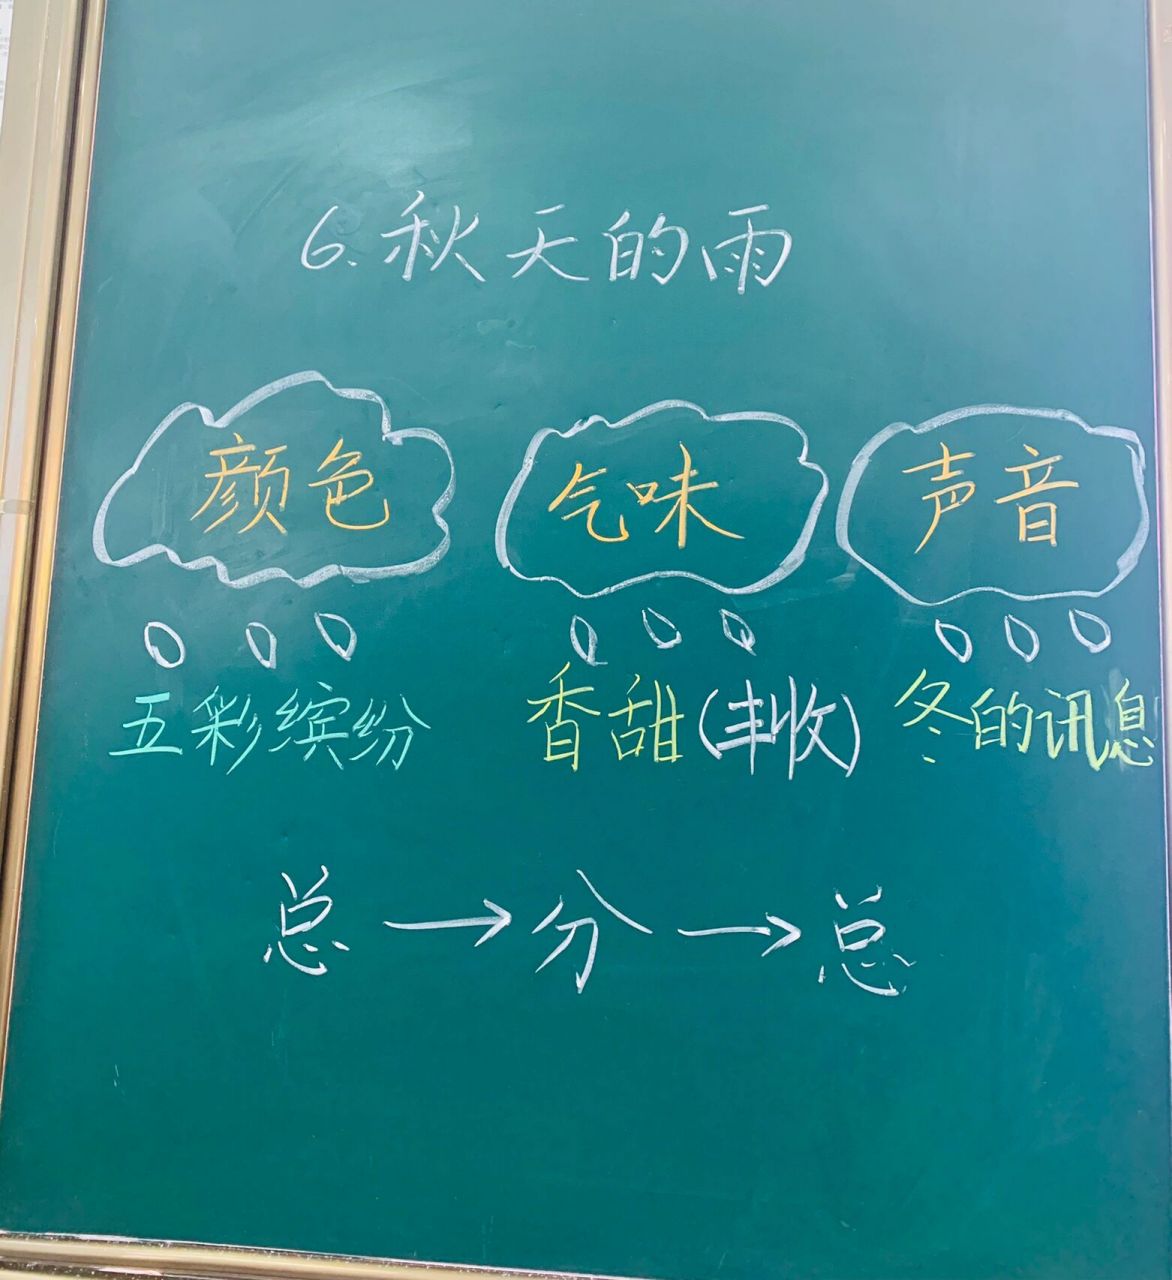 6.秋天的雨
颜色 气味 声音
五彩缤纷 香甜(丰收) 冬的讯息
总→分→总